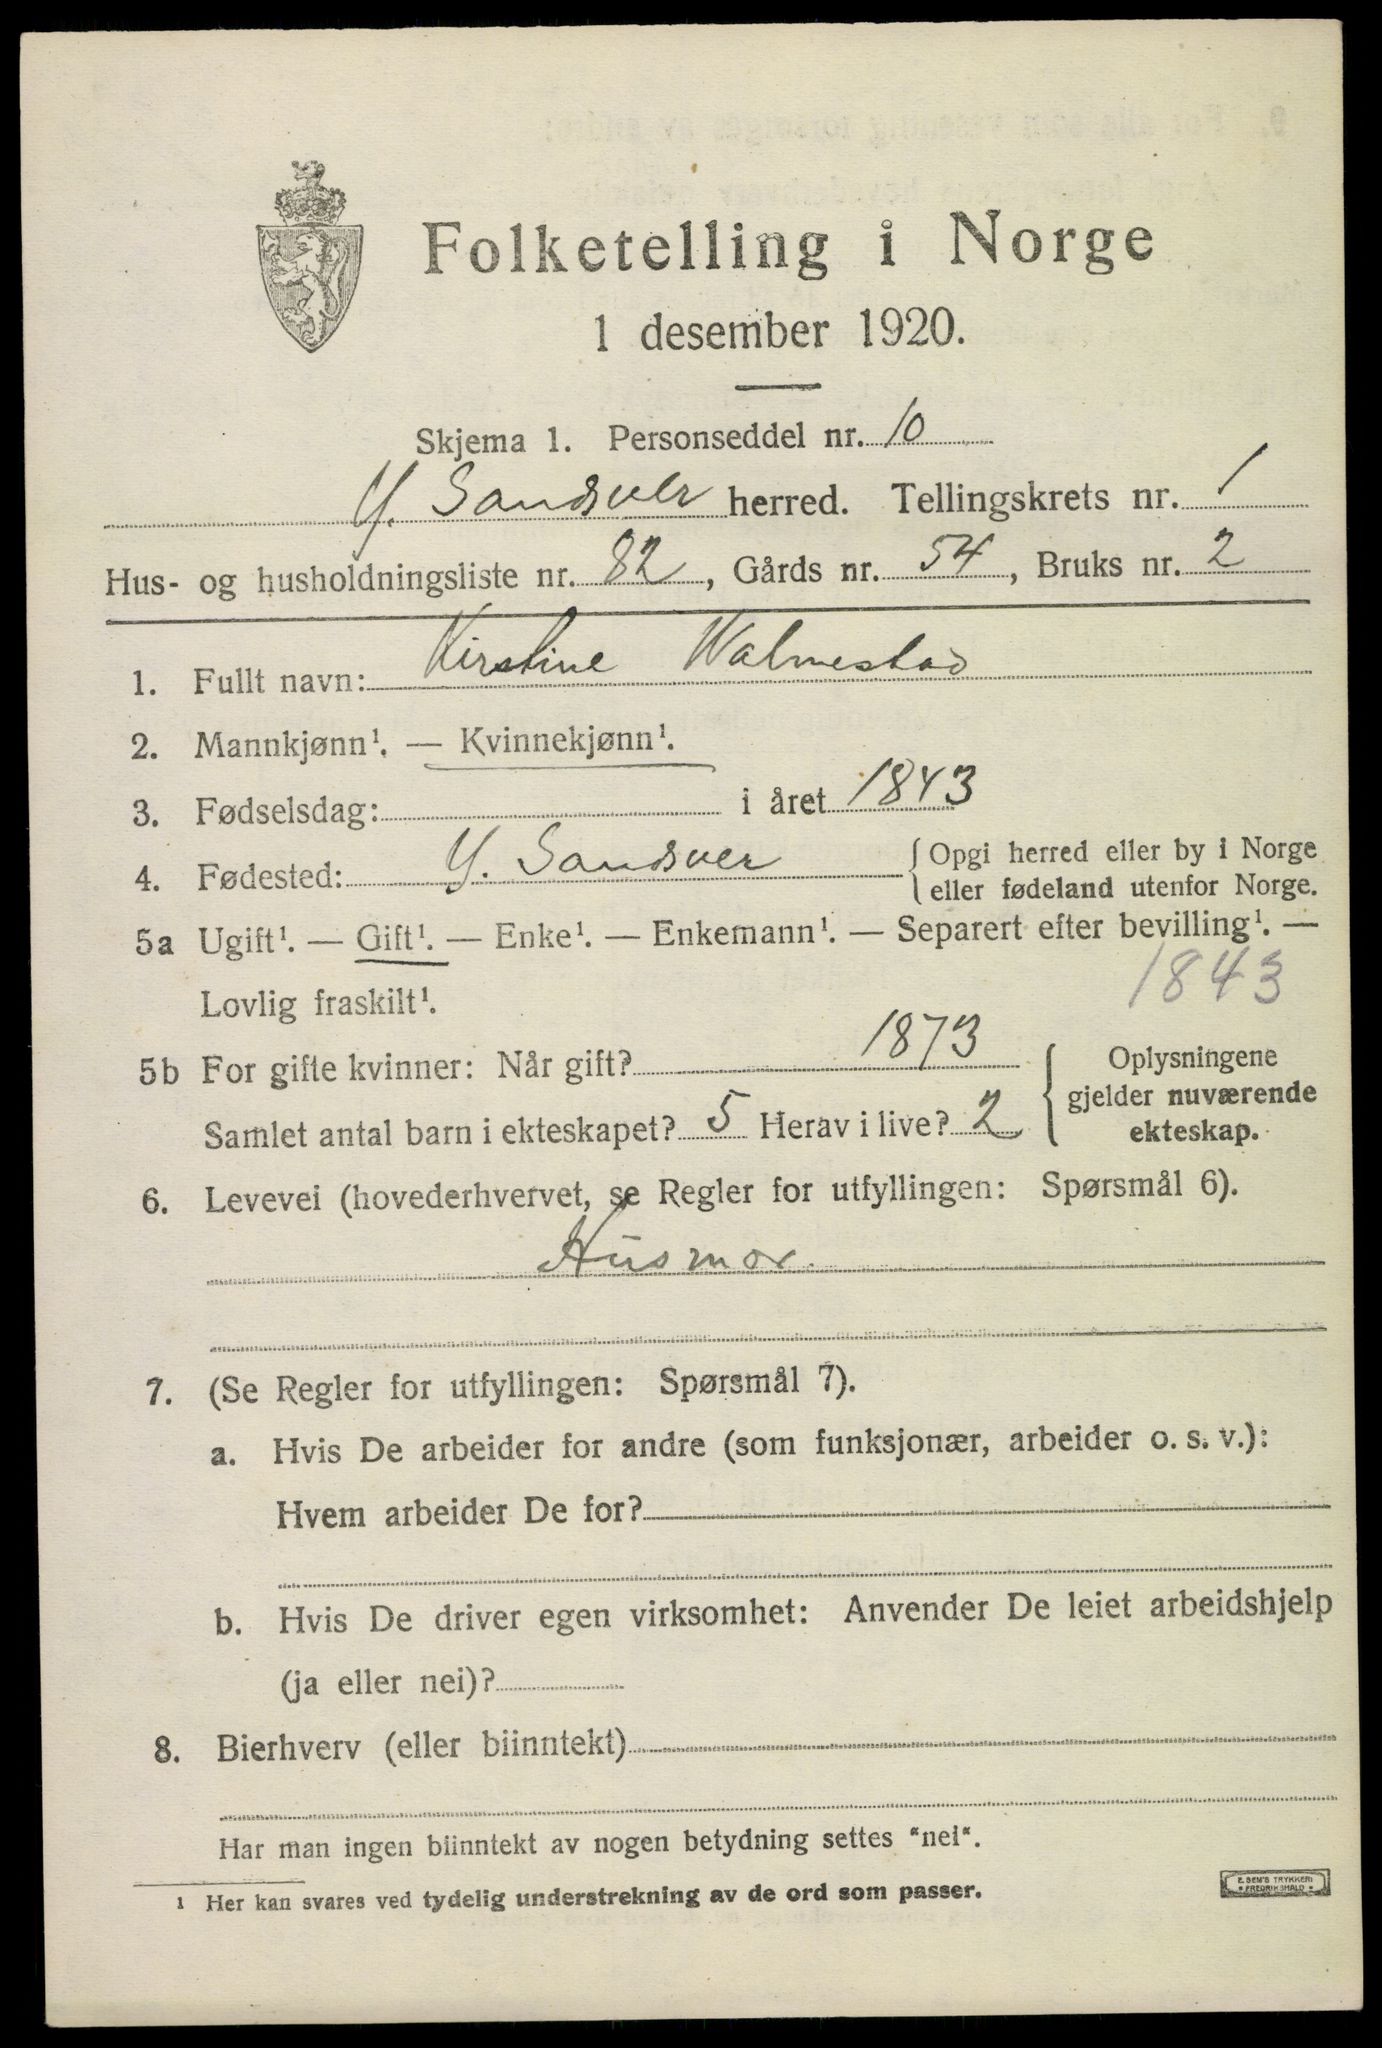 Folketelling i Norge
1 desember 1920.
Skjema 1. Personseddel nr. 10
Y. Sandsver herred. Tellingskrets nr. 1
Hus- og husholdningsliste nr. 82, Gårds nr. 54, Bruks nr. 2
1. Fullt navn: Kirstine Walmestad
2. Mannkjønn¹. — Kvinnekjønn¹.
3. Fødselsdag: i året 1843
4. Fødested: Y. Sandsver { Opgi herred eller by i Norge
eller fødeland utenfor Norge.
5a Ugift¹. — Gift¹. — Enke¹. — Enkemann¹. — Separert efter bevilling¹. —
Lovlig fraskilt¹. 1843
5b For gifte kvinner: Når gift? 1873
Samlet antal barn i ekteskapet? 5 Herav i live? 2
{ Oplysningene
gjelder nuværende
ekteskap.
6. Levevei (hovederhvervet, se Regler for utfyllingen: Spørsmål 6).
Husmor.
7. (Se Regler for utfyllingen: Spørsmål 7).
a. Hvis De arbeider for andre (som funksjonær, arbeider o. s. v.):
Hvem arbeider De for?
b. Hvis De driver egen virksomhet: Anvender De leiet arbeidshjelp
(ja eller nei)?
8. Bierhverv (eller biinntekt)
Har man ingen biinntekt av nogen betydning settes "nei".
1 Her kan svares ved tydelig understrekning av de ord som passer.
E. SEM'S TRYKKERI
• FREDRIKSHALD •